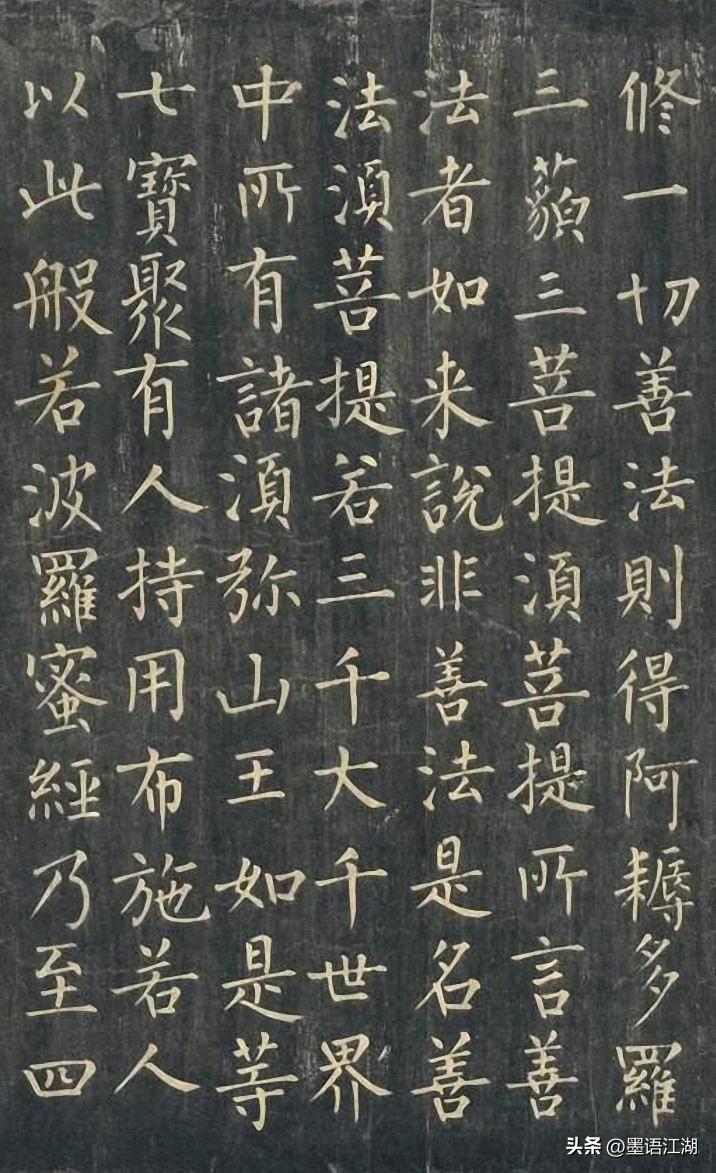 修一切善法則得阿耨多羅
三藐三菩提須菩提所言善
法者如来說非善法是名善
法須菩提若三千大千世界
中所有諸須弥山王如是等
七寶聚有人持用布施若人
以此般若波羅蜜經乃至四
头条 @墨语江湖